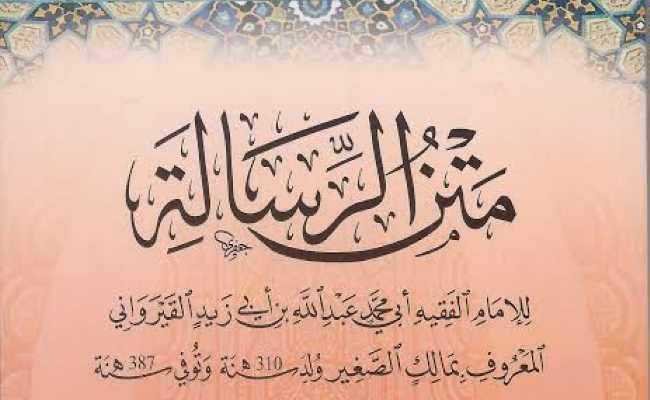 مَتْنُ الرِّسَالَةِ
جعفري
لِلإِمَامِ الفَقِيهِ أَبِي مُحَمَّدٍ عَبْدِ اللهِ بْنِ أَبِي زَيْدٍ القَيْرَوَانِي
المَعْرُوفِ بِمَالِكٍ الصَّغِيرِ وُلِدَ سنة 310 وَتُوُفِّيَ سنة 387 هـ